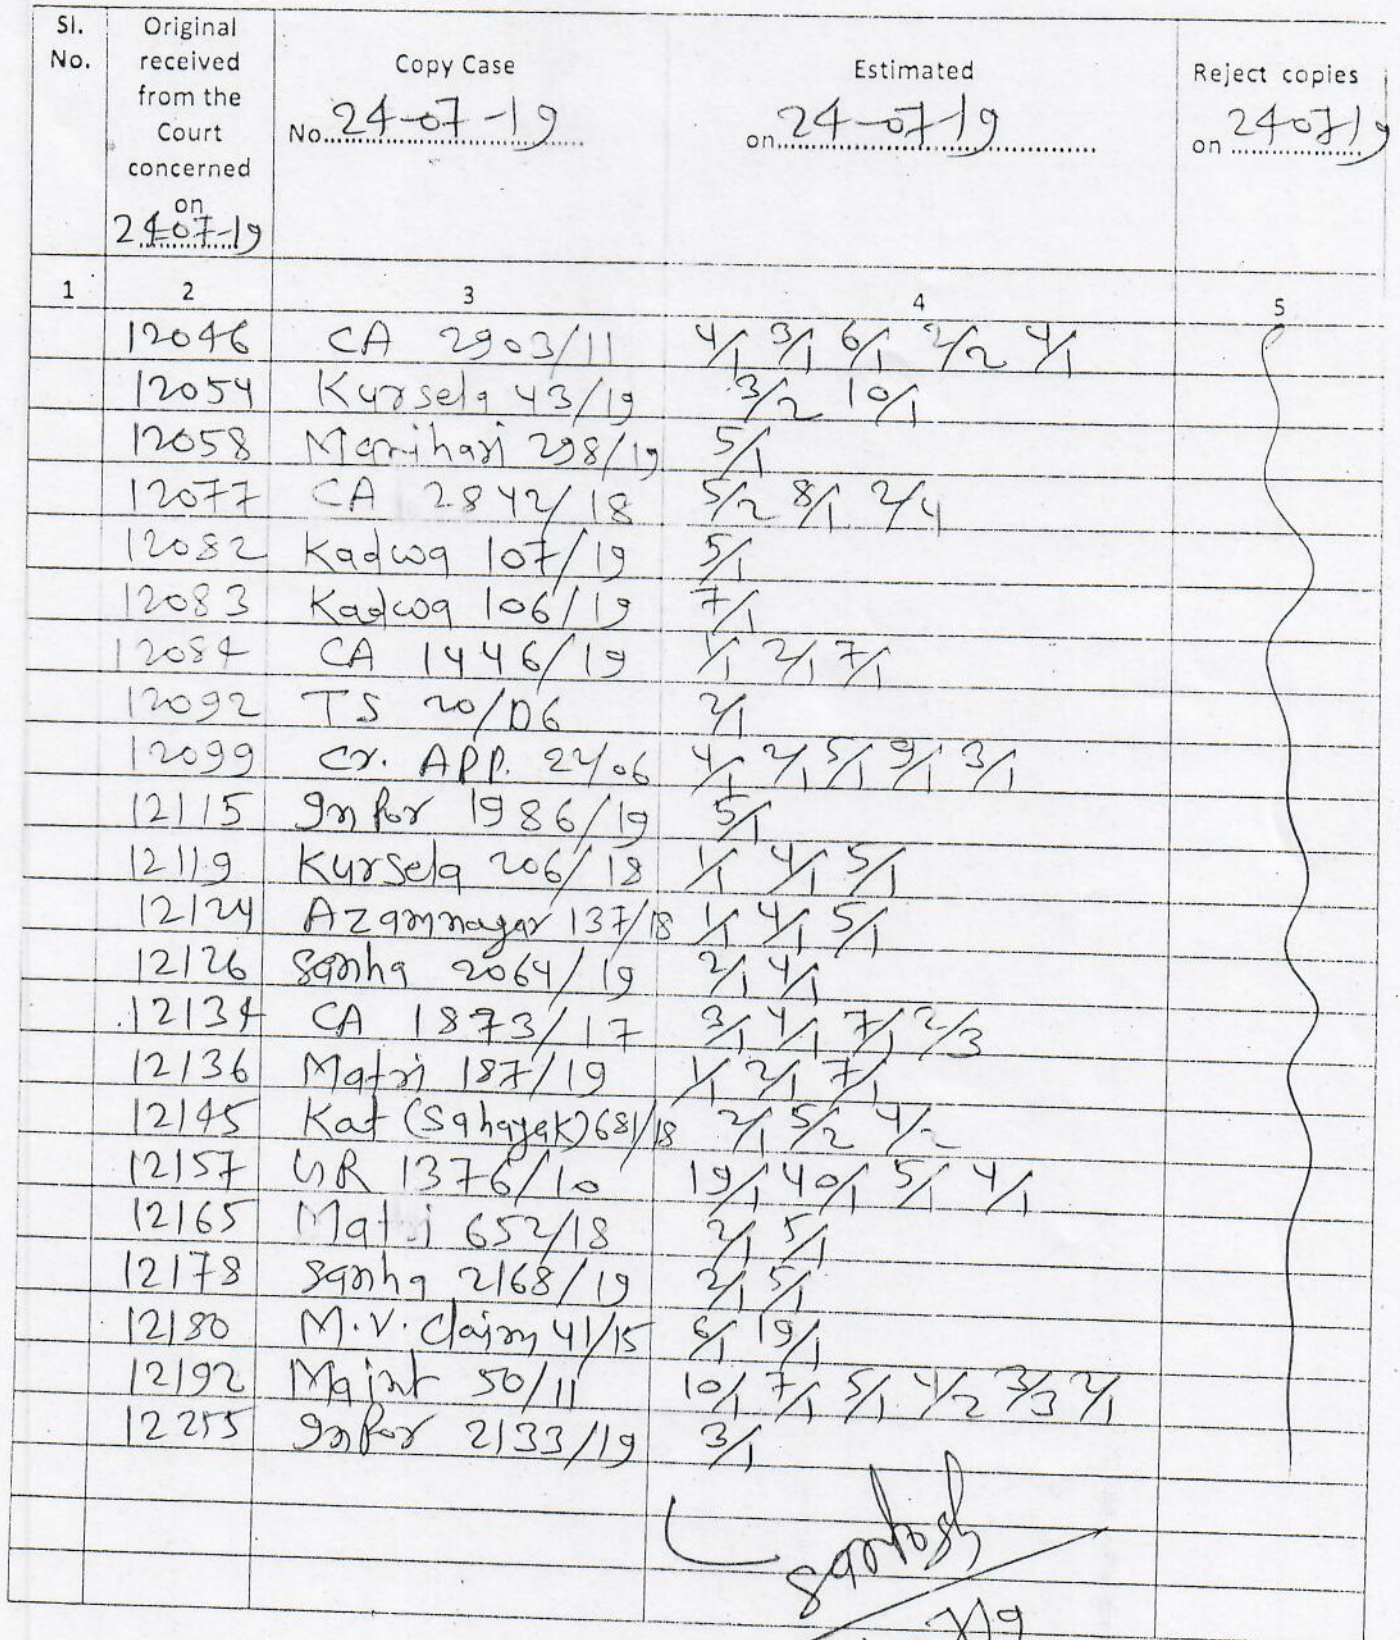 Sl. No. Original received from the Court concerned on 24-07-19 Copy Case No. 24-07-19 Estimated on 24-07-19 Reject copies on 240719
1 2 3 4 5
12046 CA 2903/11 4/1 3/1 6/1 2/2 4/1
12054 Kursela 43/19 3/2 10/1
12058 Manihari 298/19 5/1
12077 CA 2842/18 5/2 8/1 2/4
12082 Kadwa 107/19 5/1
12083 Kadwa 106/19 7/1
12084 CA 1446/19 1/1 2/1 7/1
12092 TS 20/06 2/1
12099 Cr. APP. 24/06 4/1 2/1 5/1 9/1 3/1
12115 Infor 1986/19 5/1
12119 Kursela 206/18 1/1 4/1 5/1
12124 Azamnagar 137/18 1/1 4/1 5/1
12126 Sanha 2064/19 2/1 4/1
12134 CA 1873/17 3/1 4/1 7/1 2/3
12136 Matri 187/19 1/1 2/1 7/1
12145 Kat (Sahayak) 681/18 2/1 5/2 4/2
12157 GR 1376/10 19/1 40/1 5/1 4/1
12165 Matri 652/18 2/1 5/1
12178 Sanha 2168/19 2/1 5/1
12180 M.V. Claim 41/15 6/1 19/1
12192 Maint 50/11 10/1 7/1 5/1 4/2 3/3 2/1
12255 Infor 2133/19 3/1
Santosh